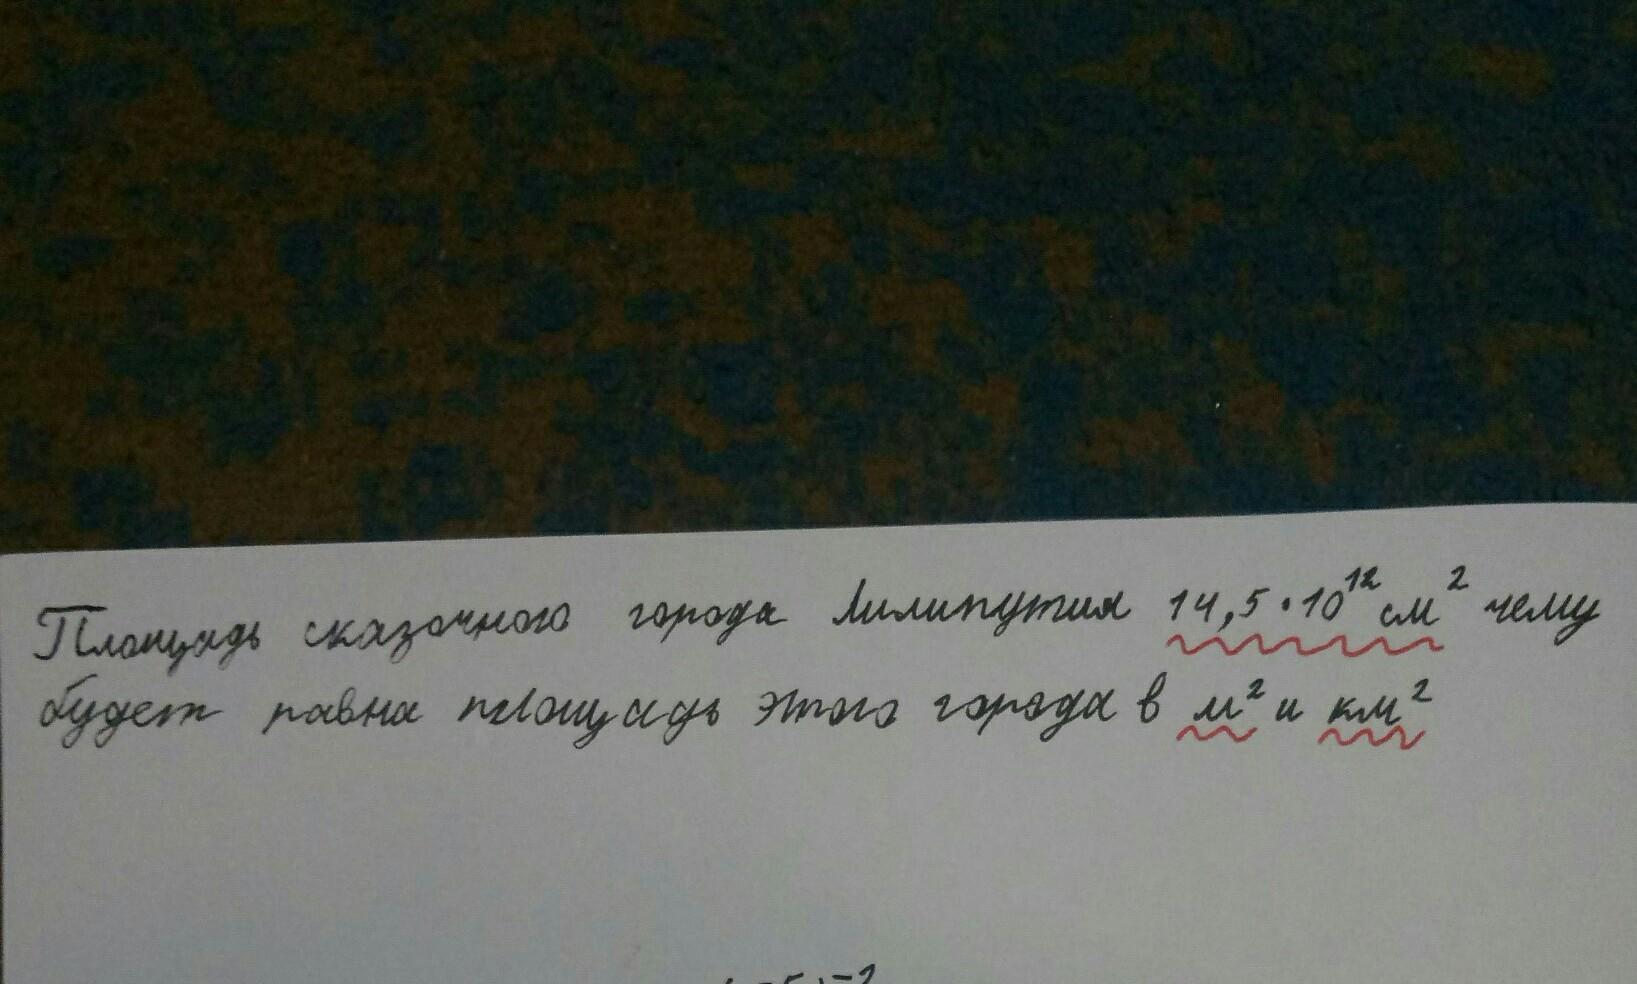 Площадь сказочного города Лилипутия 14,5•10¹² см² чему
будет равна площадь этого города в м² и км²